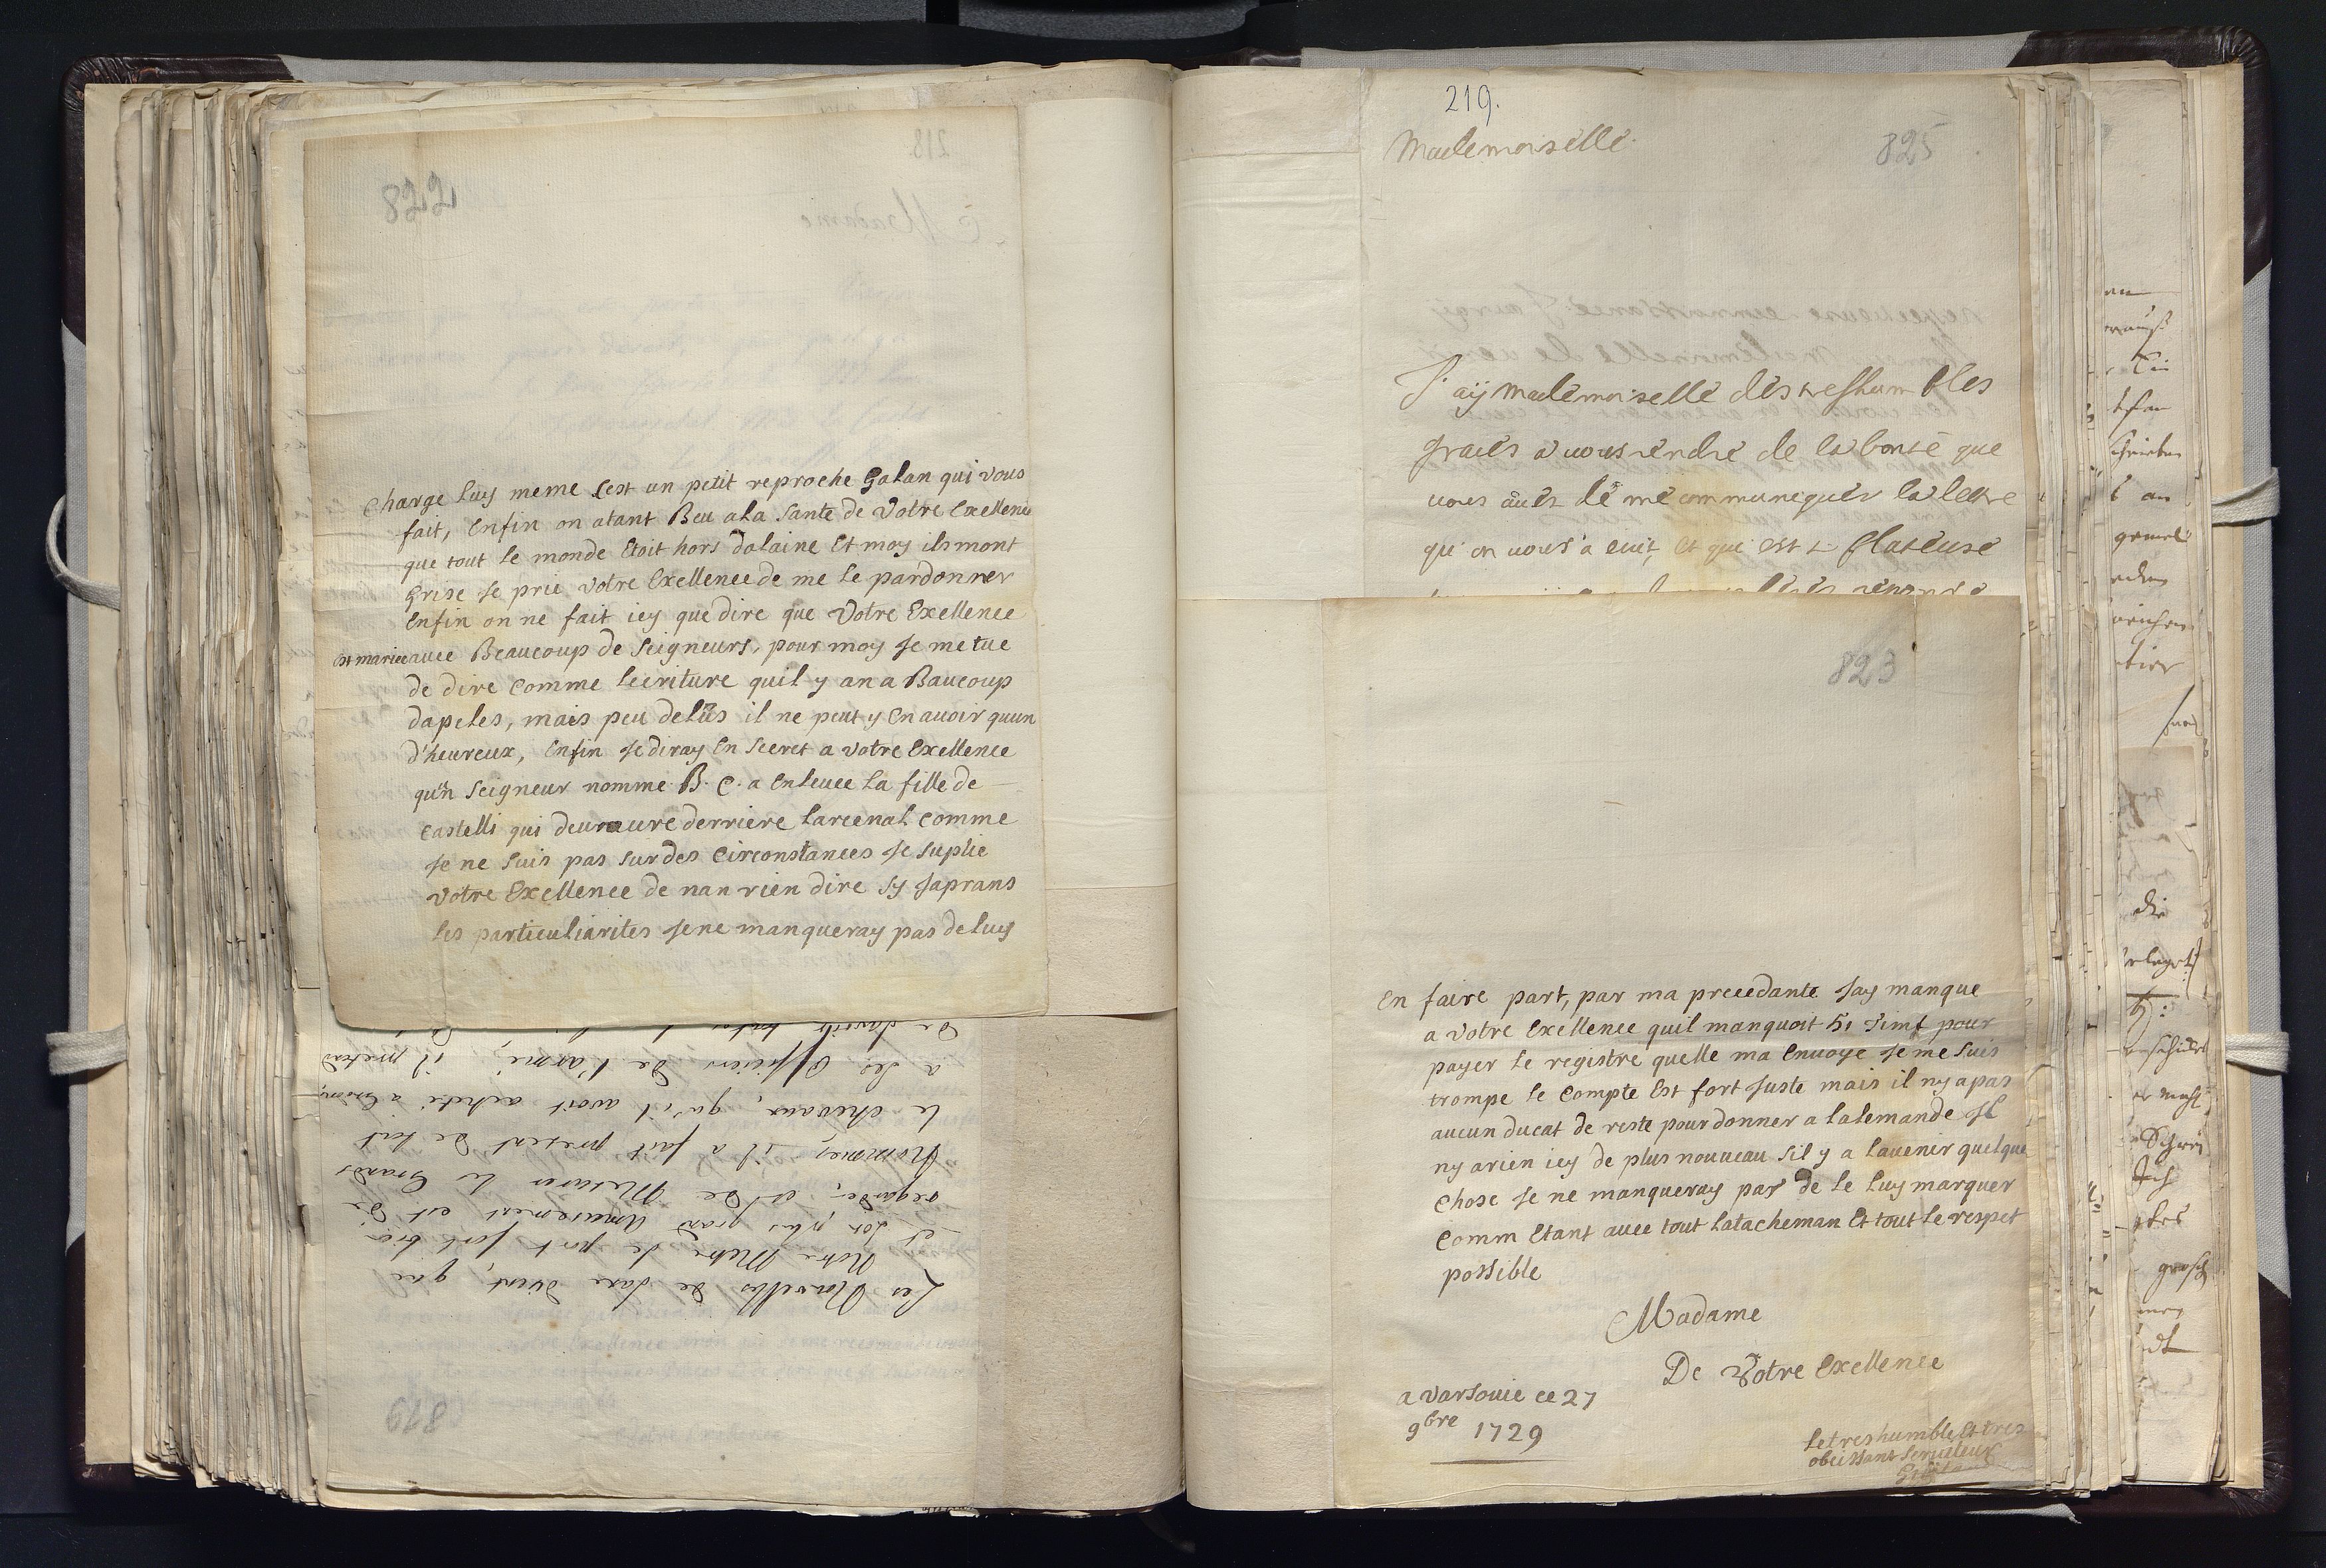 822
Charge luy meme Cest un petit reproche Galan qui vous
fait, Enfin on atant Beu ala Sante de Votre Exellence
que tout le monde Etoit hors dalaine Et moy ils mont
Grise Je prie Votre Exellence de me le pardonner
Enfin on ne fait icy que dire que Votre Exellence
est mariee avec Beaucoup de Seigneurs, pour moy Je me tue
de dire Comme lecriture quil y an a Baucoup
dapeles, mais peu delus il ne peut y En avoir quun
d'heureux, Enfin Je diray En Secret a votre Exellence
qu'n Seigneur nomme B. C. a Enlevee la fille de
Castelli qui deumeure derriere larcenal Comme
Je ne Suis pas Sur des Circonstances Je Suplie
Votre Exellence de nan rien dire Sy Japrans
les particuliarites Jene manqueray pas de luy
Les Nouvelles de Saxe disent, que
Notre Metre se port fort bien
et son plus grand Amusement est de
regarder, et de Mesurer les Grands
Hommes, il a fait present de tout
le chevaux, qu'il avoit acheté a
a les Officiers de l'armé, il pretend
819
219.
825
Mademoiselle.
J'aÿ Mademoiselle des treshumbles
graces a vous rendre de la bonté que
vous avés de me communiquer la lettre
qu'on vous a ecrit, et qui est si flateuse
823
En faire part, par ma precedante Jay manque
a Votre Exellence quil manquoit 51 timf pour
payer le registre quelle ma Envoye Je me Suis
trompe le Compte Est fort Juste mais il ny a pas
aucun ducat de reste pour donner a lalemande Il
ny a rien icy de plus nouveau Sil y a lavenir quelque
Chose Je ne manqueray pas de le luy marquer
Comm Etant avec tout latacheman Et tout le respet
possible
Madame
De Votre Exellence
a Varsovie ce 27
9bre 1729
le tres humble Et tres
obeissant Serviteur